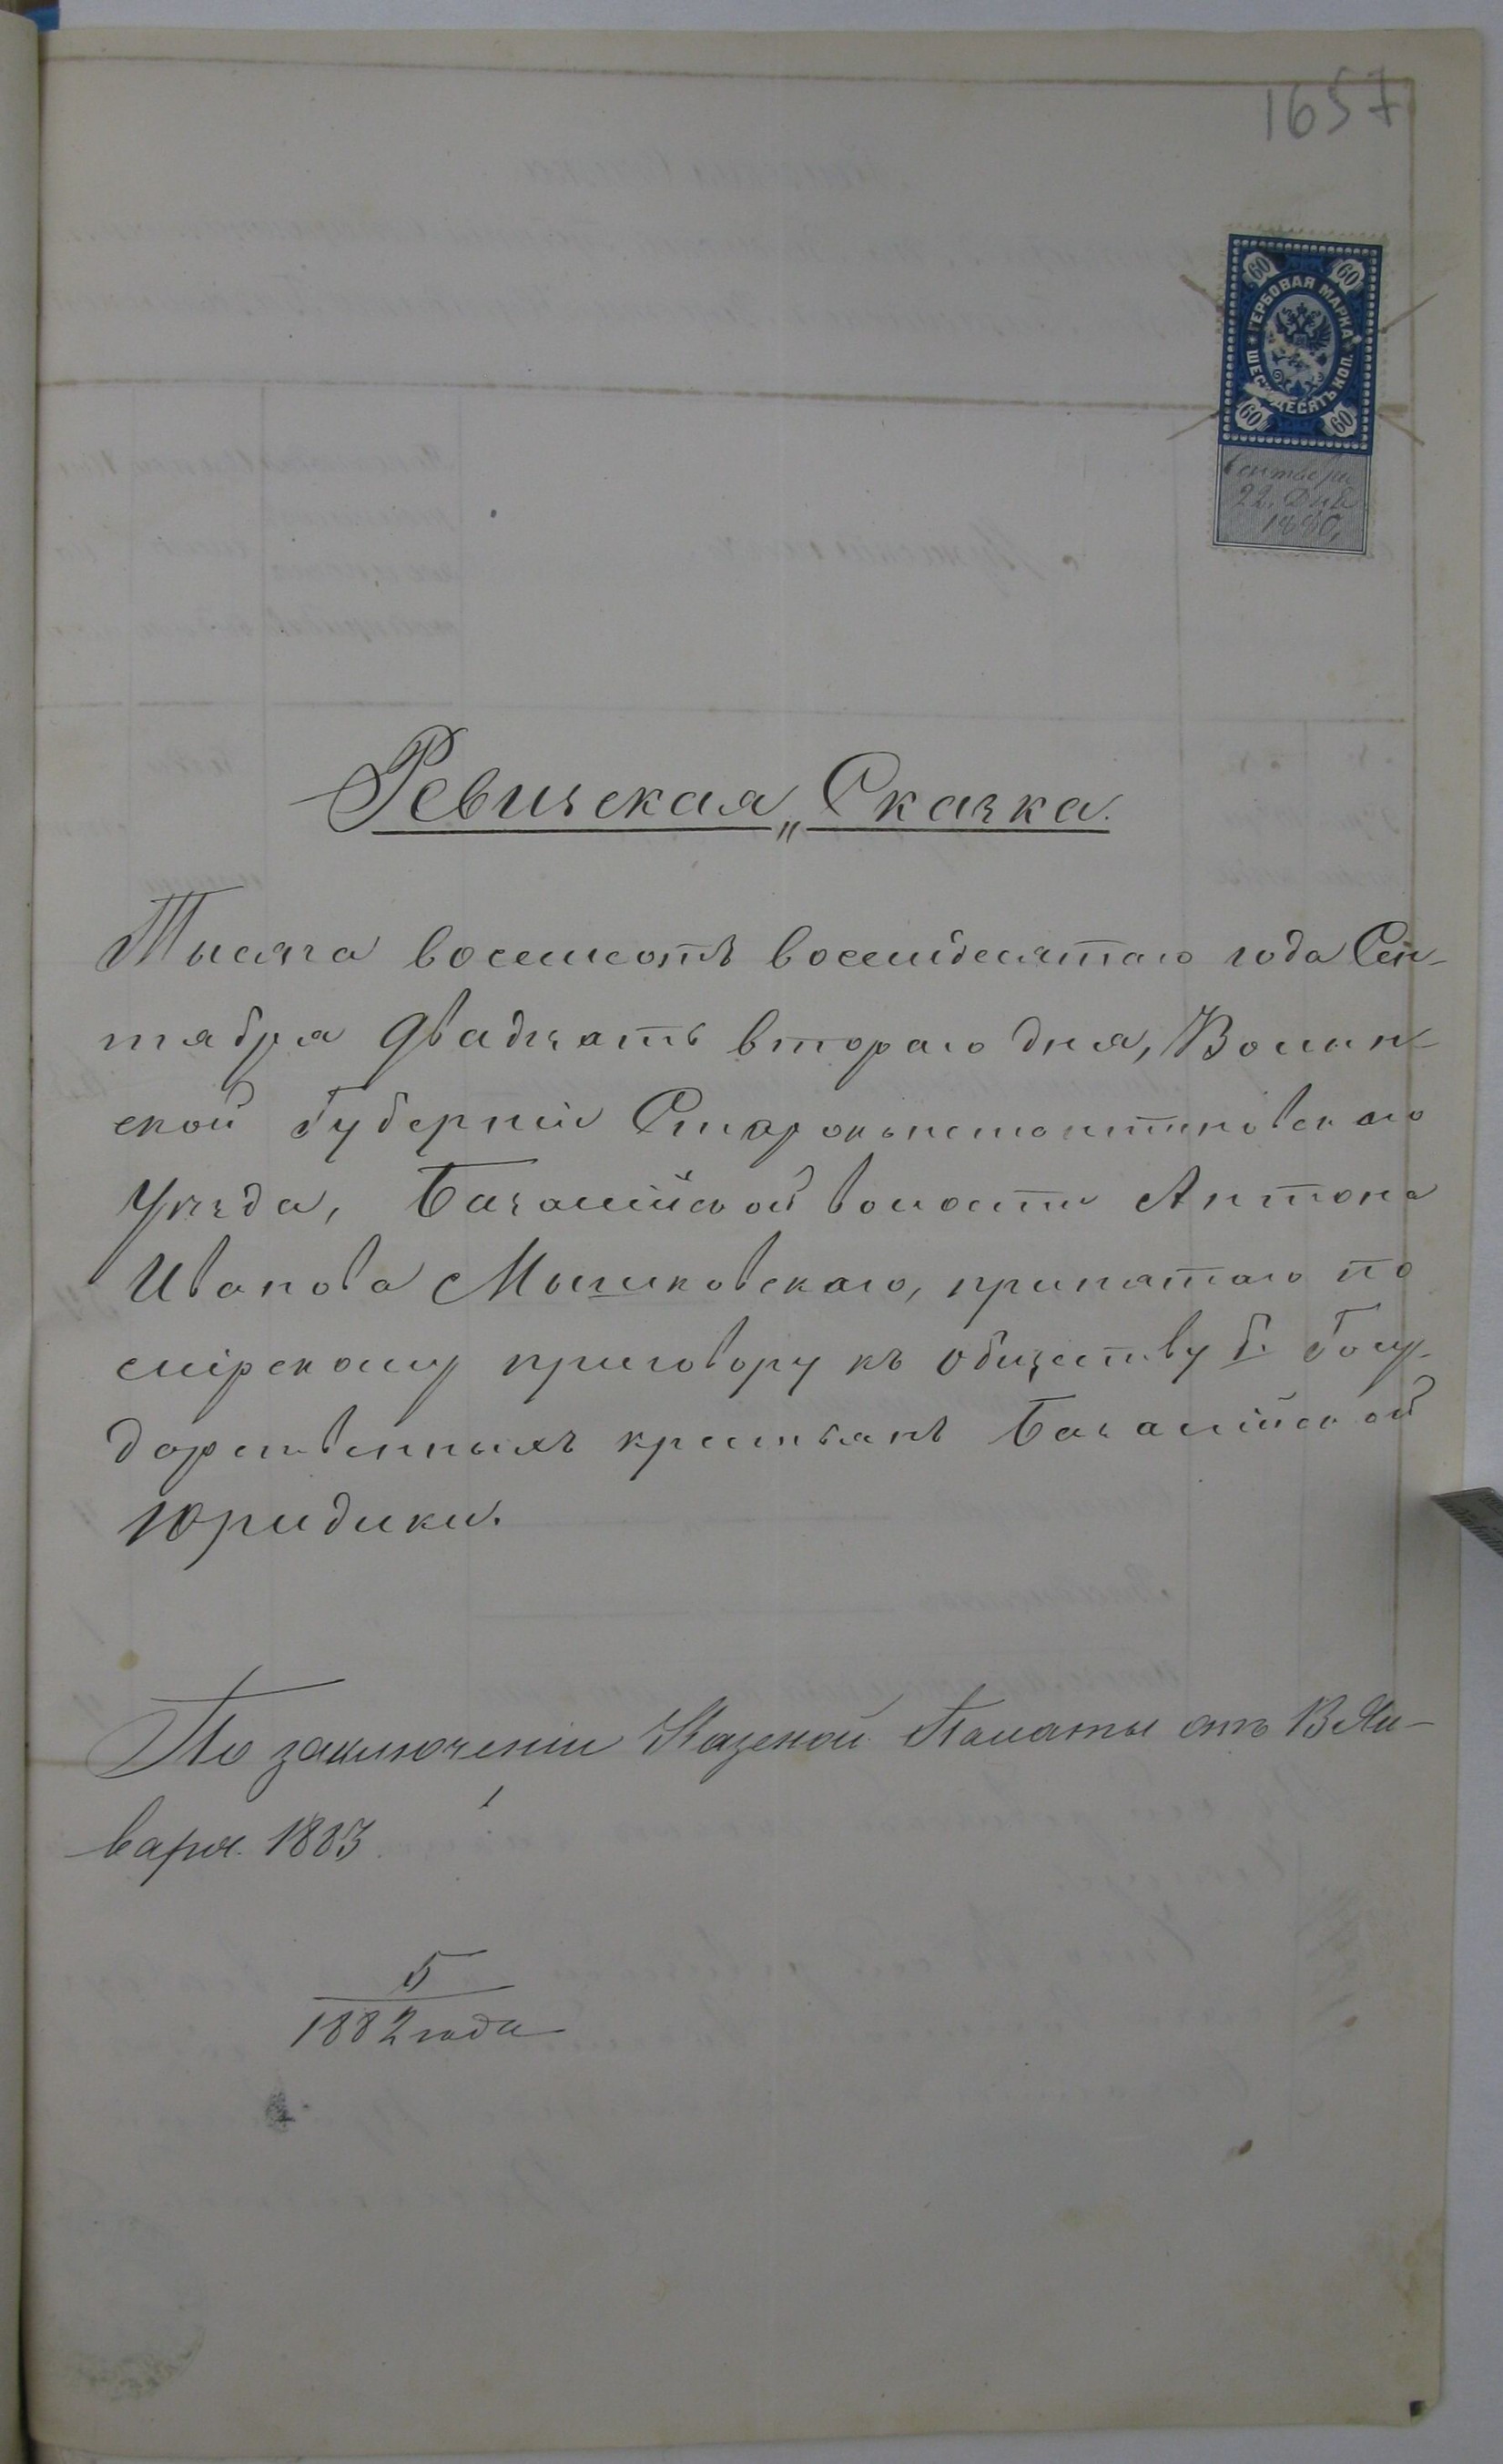 1657
ГЕРБОВАЯ МАРКА
ШЕСТЬДЕСЯТЪ КОП.
60 60
60 60
Сентября
22. Дня
1880,
Ревизская „ Сказка.
Тысяча восемсотъ восемдесятаго года Сен-
тября двадцать втораго дня, Волын-
ской Губерніи Староконстантиновскаго
Уѣзда, Базалійской волости Антона
Иванова Мышковскаго, принятаго по
мірскому приговору къ обществу б. Госу-
дарственныхъ крестьянъ Базалійской
Юридики.
По заключеніи Казеной Палаты отъ 13 Ян-
варя 1883
5
1882 года